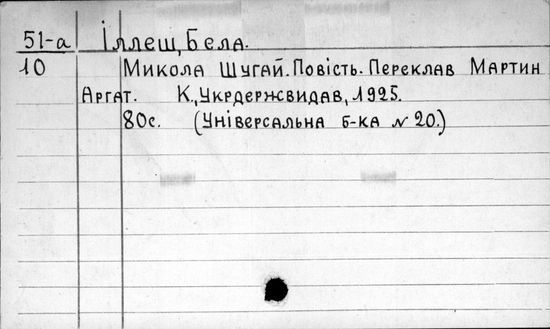 51-а Іллеш, Бела.
10 Микола Шугай. Повість. Переклав Мартин
Аргат. К., Укрдержвидав, 1925.
80с. (Універсальна б-ка № 20.)